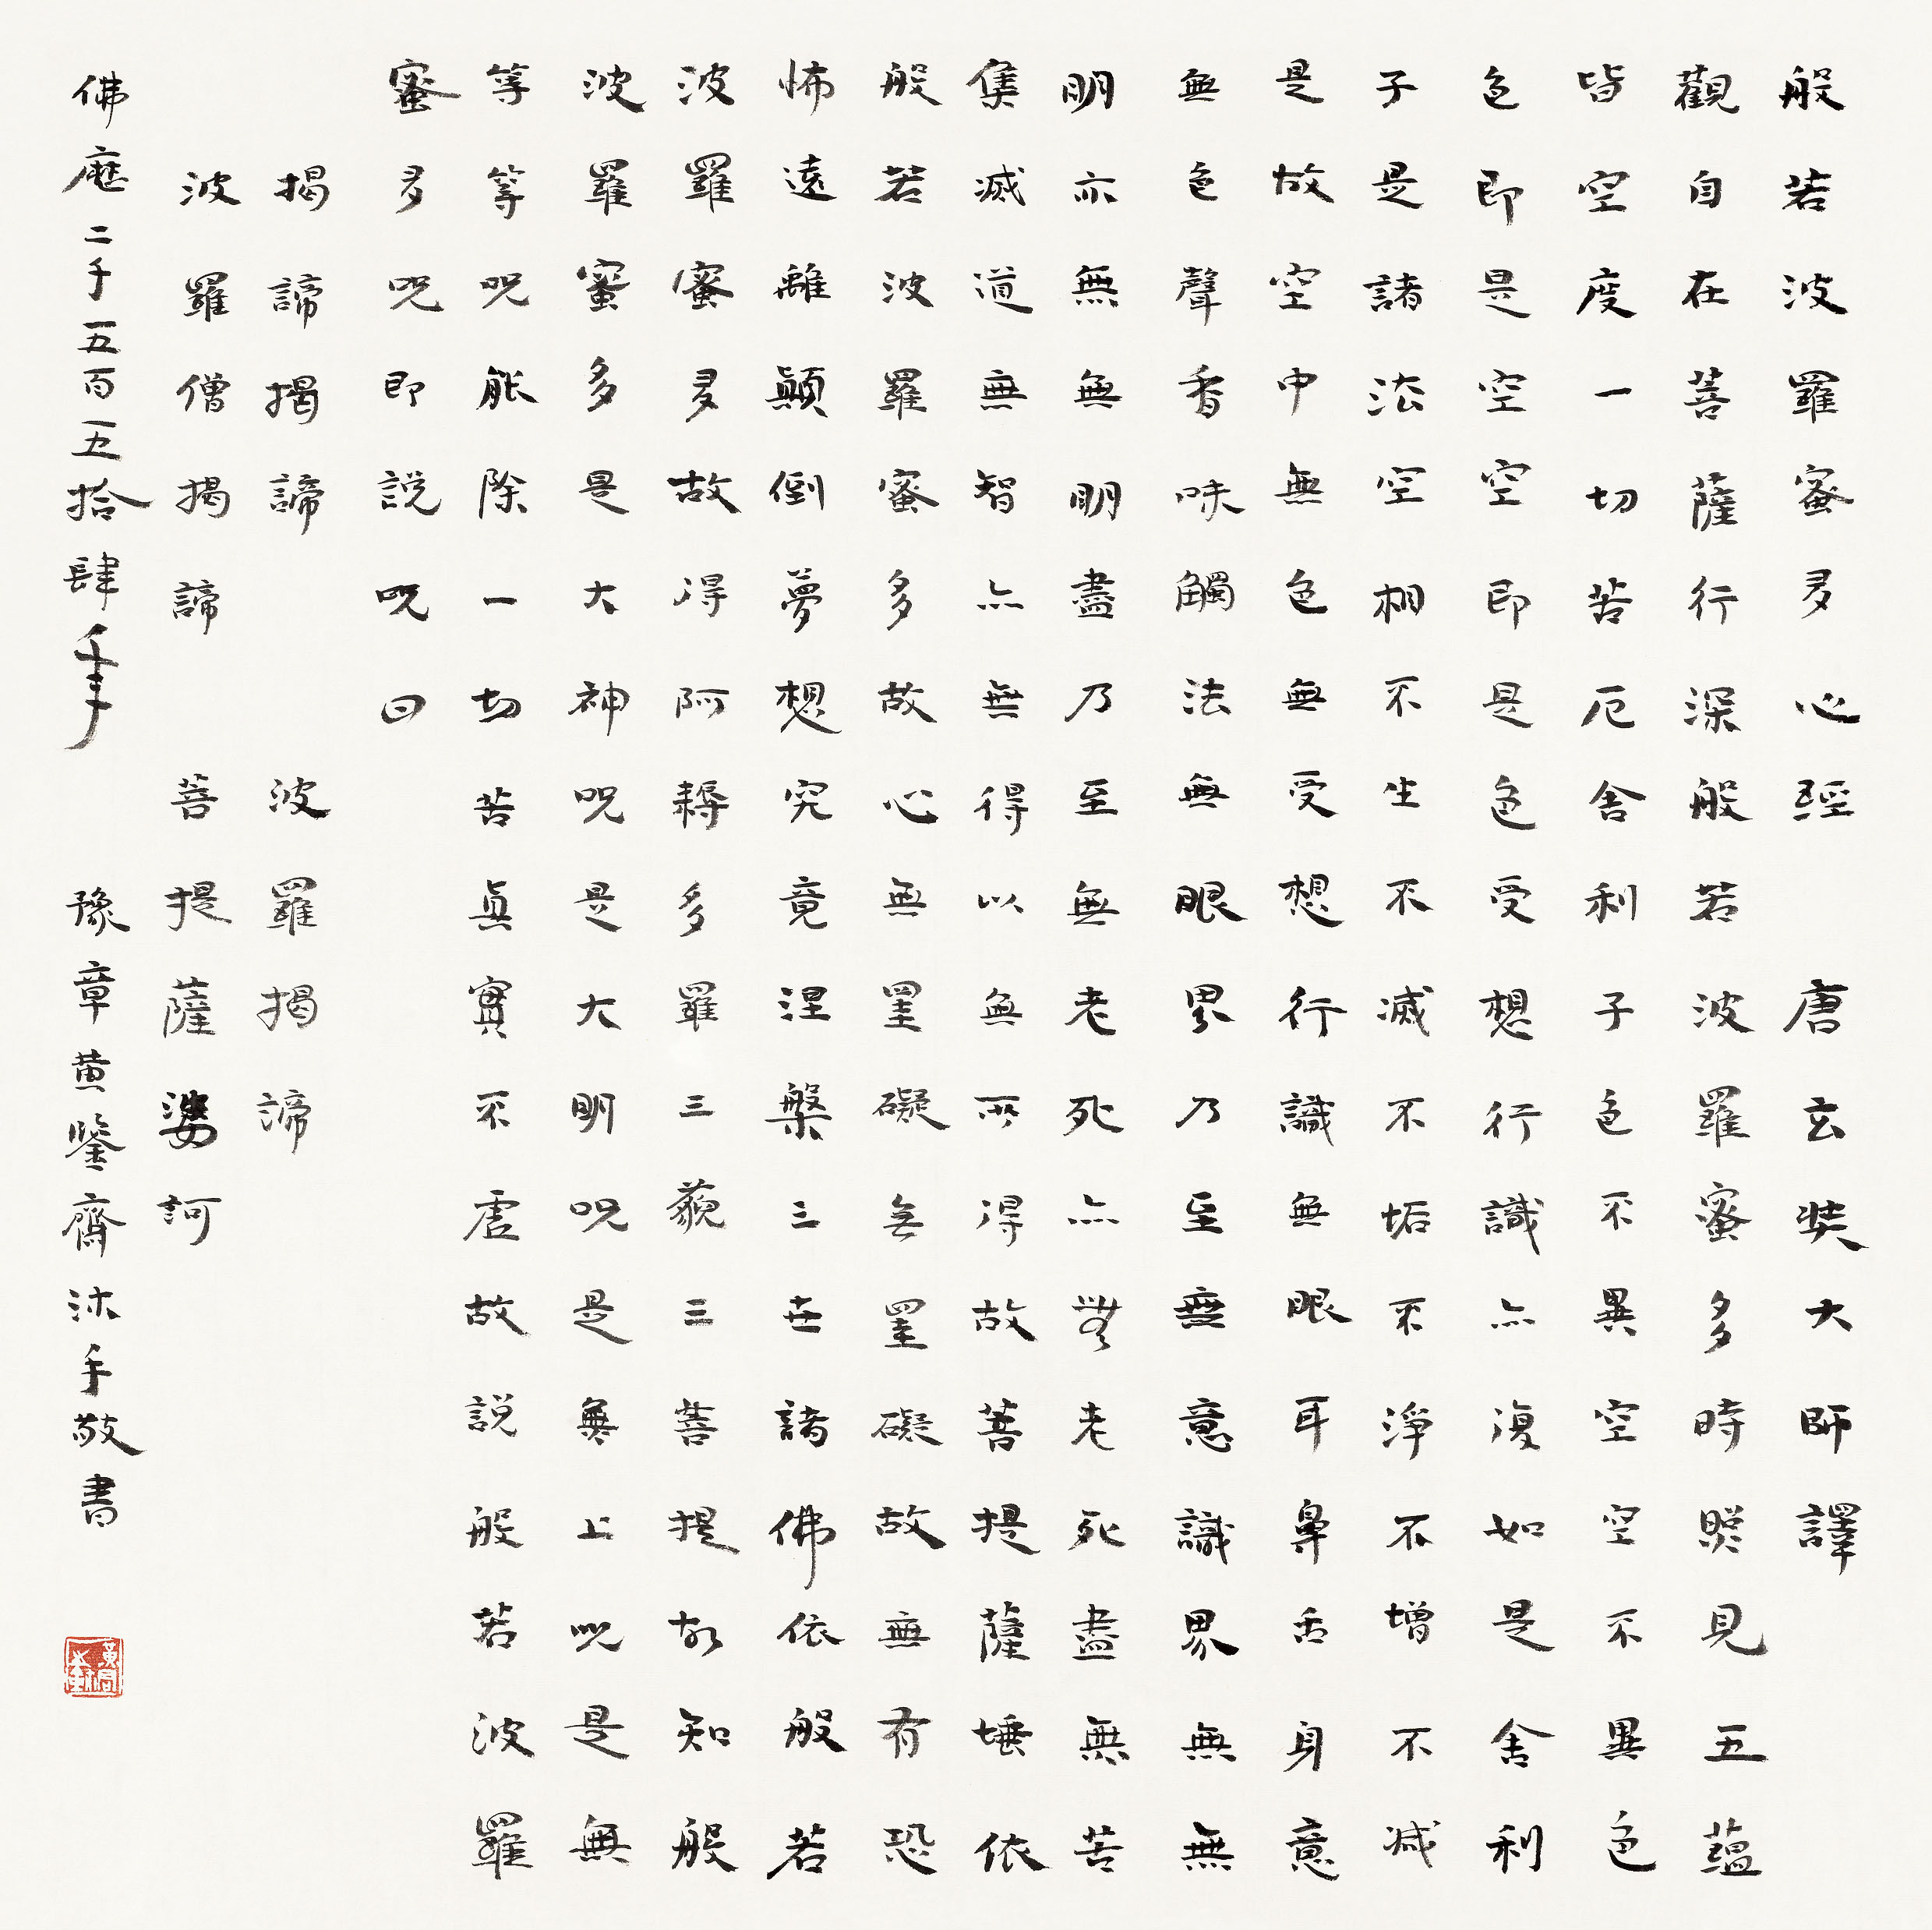 般若波羅蜜多心經 唐玄奘大師譯
觀自在菩薩行深般若波羅蜜多時照見五蘊
皆空度一切苦厄舍利子色不異空空不異色
色即是空空即是色受想行識亦復如是舍利
子是諸法空相不生不滅不垢不淨不增不減
是故空中無色無受想行識無眼耳鼻舌身意
無色聲香味觸法無眼界乃至無意識界無無
明亦無無明盡乃至無老死亦無老死盡無苦
集滅道無智亦無得以無所得故菩提薩埵依
般若波羅蜜多故心無罣礙無罣礙故無有恐
怖遠離顛倒夢想究竟涅槃三世諸佛依般若
波羅蜜多故得阿耨多羅三藐三菩提故知般
波羅蜜多是大神呪是大明呪是無上呪是無
等等呪能除一切苦真實不虛故説般若波羅
蜜多呪即説呪曰
揭諦揭諦 波羅揭諦
波羅僧揭諦 菩提薩婆訶
佛歷二千五百五拾肆年 豫章黄鋻齋沐手敬書